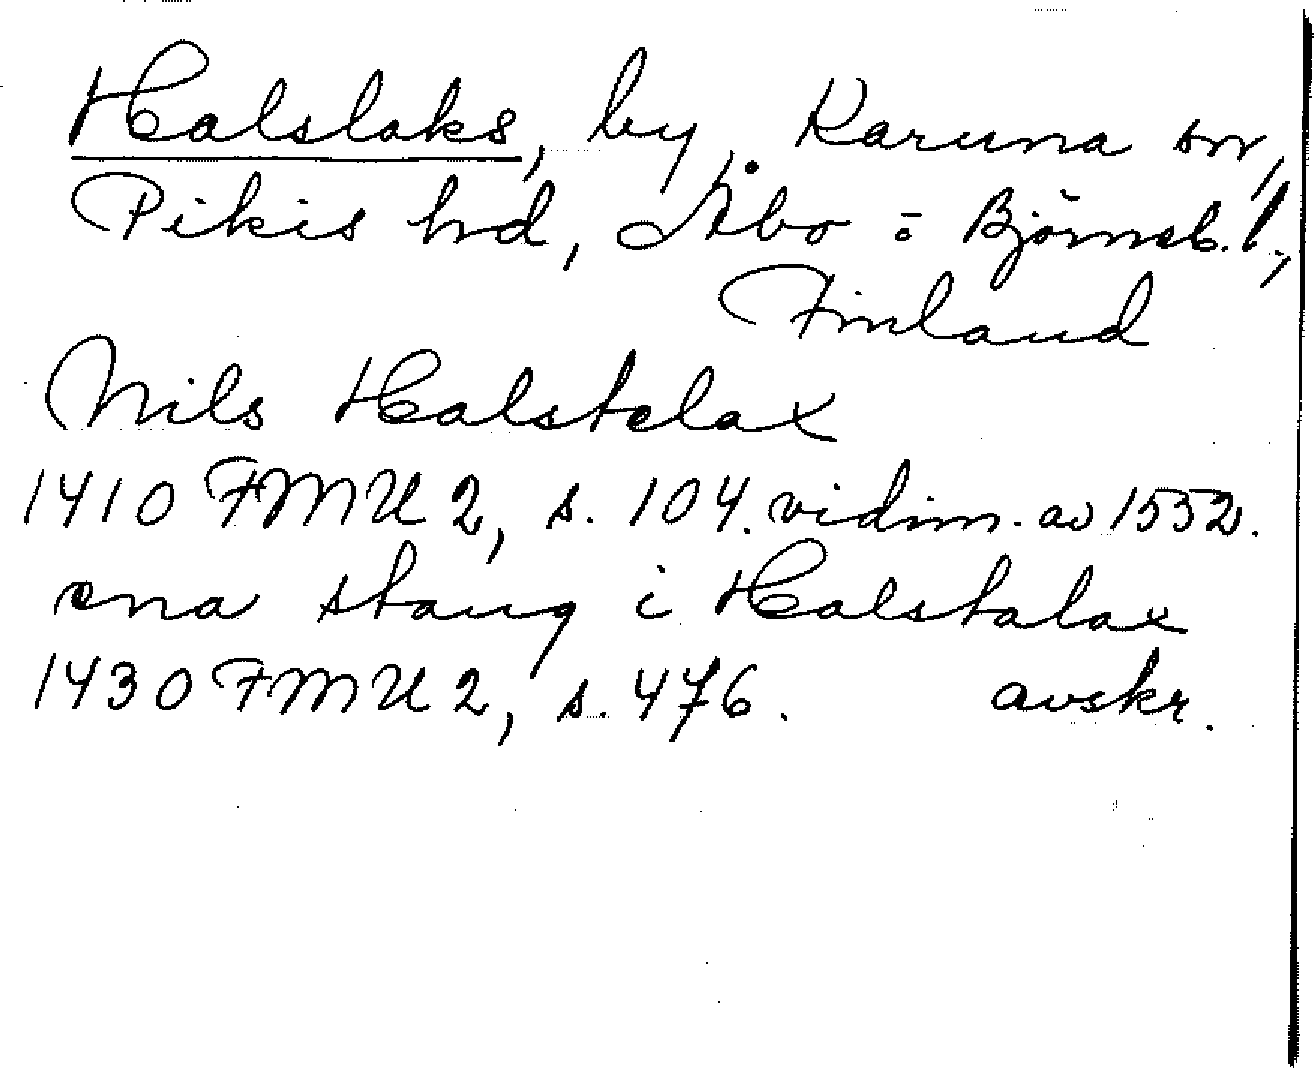 Halslaks, by, Karuna sn,
Pikis hd, Åbo o Björneb. l.,
Finland
Nils Halstelax
1410 FMU 2, s. 104. vidim. av 1552.
ena stang i Halstalax
1430 FMU 2, s. 476. avskr.